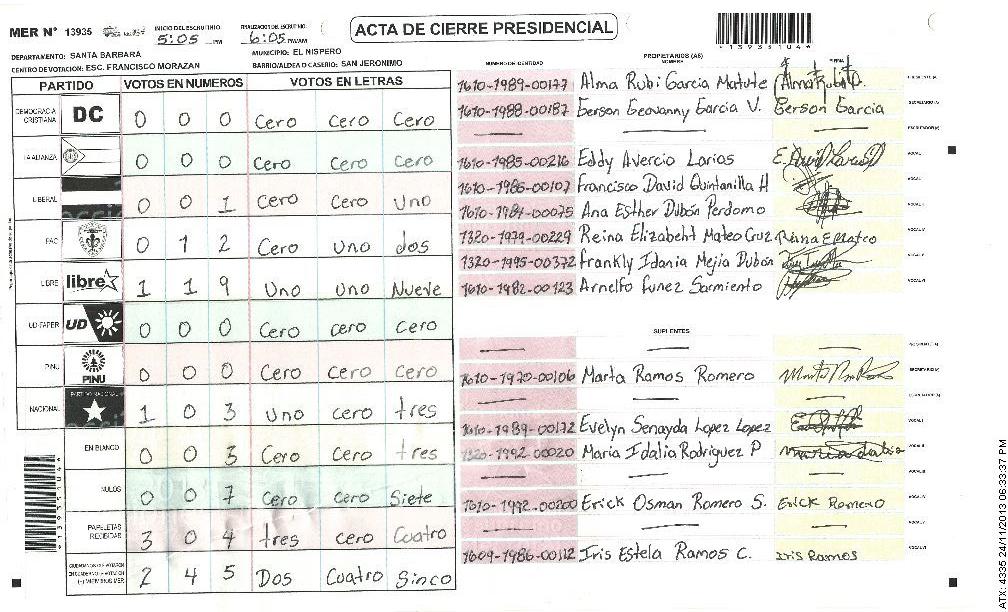 MER N° 13935 INICIO DEL ESCRUTINIO: 5:05 PM FINALIZACION DEL ESCRUTINIO: 6:05 PM/AM
ACTA DE CIERRE PRESIDENCIAL
*13935104*
DEPARTAMENTO: SANTA BARBARA MUNICIPIO: EL NISPERO
CENTRO DE VOTACION: ESC. FRANCISCO MORAZAN BARRIO/ALDEA O CASERIO: SAN JERONIMO
PARTIDO VOTOS EN NUMEROS VOTOS EN LETRAS
DEMOCRACIA CRISTIANA DC 0 0 0 Cero Cero Cero
LA ALIANZA 0 0 0 Cero Cero Cero
LIBERAL 0 0 1 Cero Cero Uno
PAC 0 1 2 Cero Uno dos
LIBRE libre 1 1 9 Uno Uno Nueve
UD-FAPER UD 0 0 0 Cero cero Cero
PINU PINU 0 0 0 Cero Cero Cero
NACIONAL PARTIDO NACIONAL 1 0 3 Uno cero tres
EN BLANCO 0 0 3 Cero Cero tres
NULOS 0 0 7 Cero Cero Siete
PAPELETAS RECIBIDAS 3 0 4 tres cero Cuatro
2 4 5 Dos Cuatro Sinco
*13935104*
NUMERO DE IDENTIDAD PROPIETARIOS (AS) NOMBRE FIRMA
1610-1989-00177 Alma Rubi Garcia Matute
1610-1988-00187 Gerson Geovanny Garcia V. Gerson Garcia SECRETARIO (A)
ESCRUTADOR (A)
1610-1985-00216 Eddy Avercio Larios VOCAL I
1610-1986-00107 Francisco David Quintanilla H
1610-1984-00075 Ana Esther Dubón Perdomo
1320-1979-00229 Reina Elizabeht Mateo Cruz
1320-1995-00372 Frankly Idania Mejia Dubón
1610-1982-00123 Arnelfo Funez Sarmiento
SUPLENTES
1610-1970-00106 Marta Ramos Romero
1610-1989-00172 Evelyn Senayda Lopez Lopez
1320-1992-00020 Maria Idalia Rodriguez P
1610-1992-00200 Erick Osman Romero S. Erick Romero
1609-1986-00112 Iris Estela Ramos C. Iris Ramos
ATX: 4335 24/11/2013 06:33:37 PM